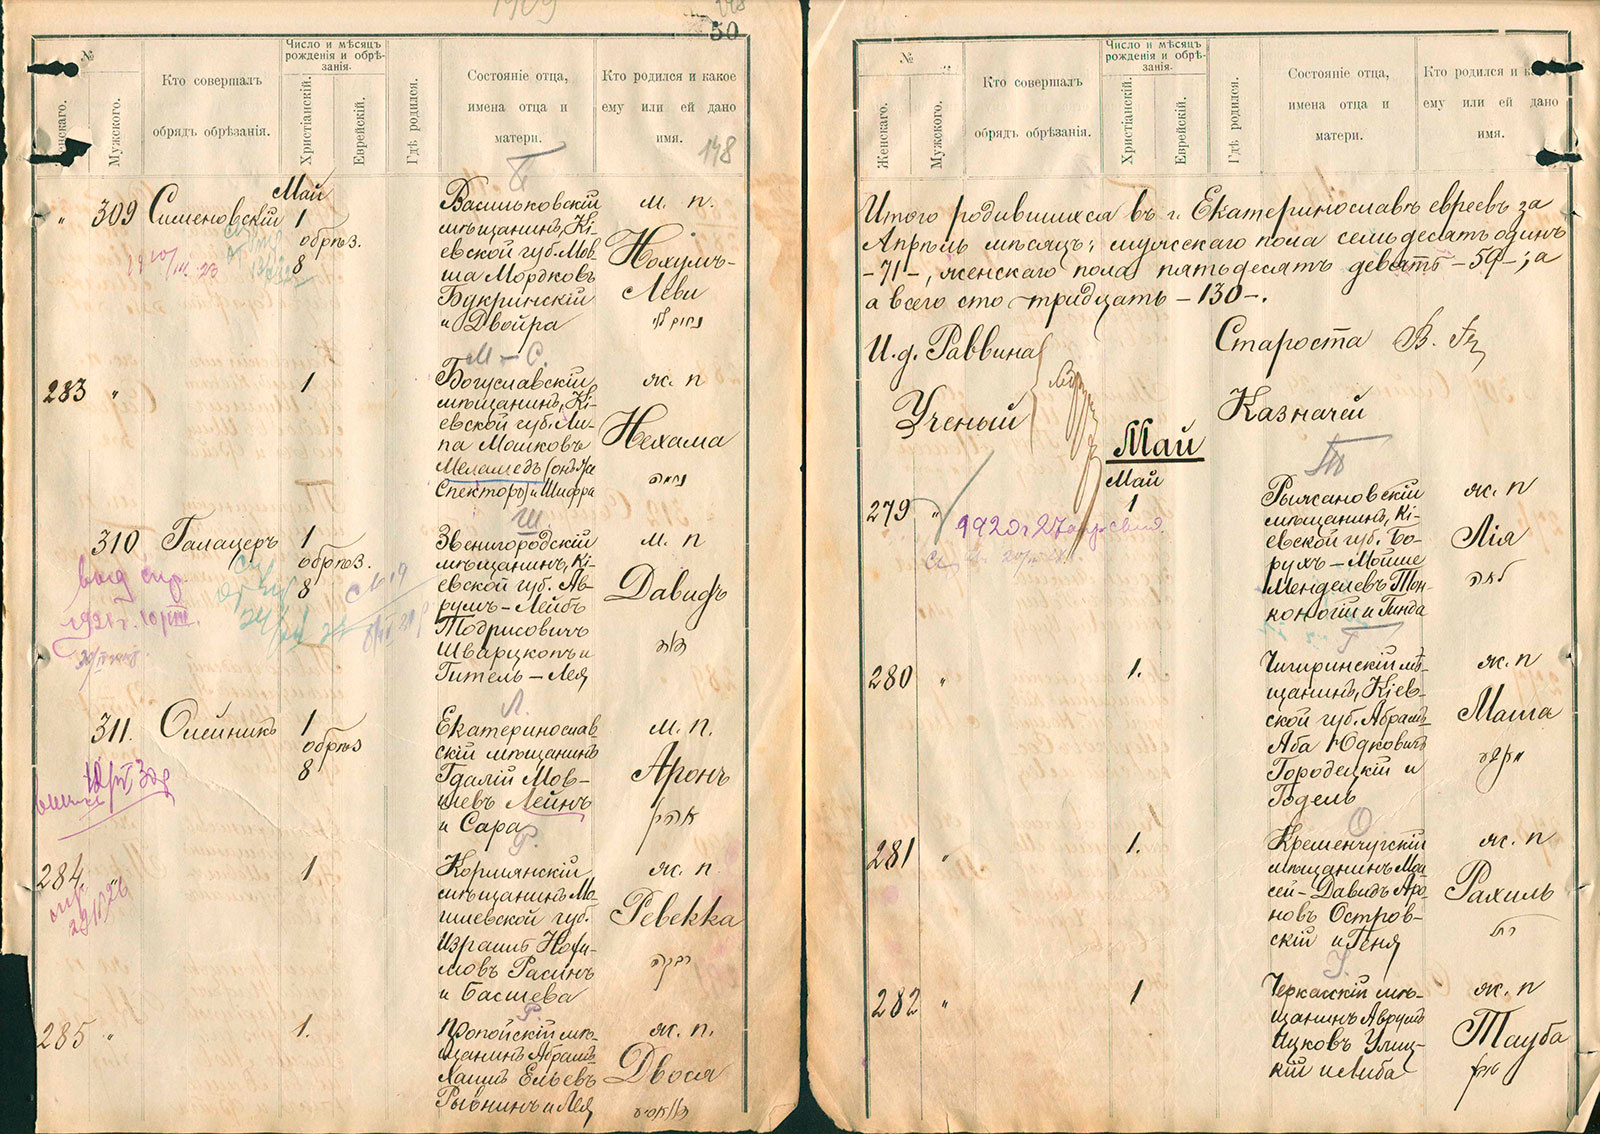 1909
50
№
Женскаго.
Мужского.
Кто совершалъ
обрядъ обрѣзанія.
Число и мѣсяцъ
рожденія и обрѣ-
занія.
Христіанскій.
Еврейскій.
Гдѣ родился.
Состояніе отца,
имена отца и
матери.
Кто родился и какое
ему или ей дано
имя.
148
Май
" 309 Сименовскій 1
обрѣз.
8
Васильковскій
мѣщанинъ, Кі-
евской губ. Мов-
ша Мордковъ
Букринскій
и Двойра
м. п.
Нохумъ-
Леви
נחום לוי
М – С.
283 " 1
Богуславскій
мѣщанинъ, Кі-
евской губ. Ли-
па Мошковъ
Меламедъ (онъ же
Спекторъ) и Шифра
ж. п
Нехама
נחמה
Ш.
310 Галацеръ 1
обрѣз.
8
Звенигородскій
мѣщанинъ, Кі-
евской губ. Ав-
румъ-Лейбъ
Тодрисовичъ
Шварцкопъ и
Гитель-Лея
м. п
Давидъ
דוד
выд. спр.
Л.
311. Олейникъ 1
обрѣз
8
Екатеринослав-
скій мѣщанинъ
Гдалій Мов-
шевъ Лейнъ
и Сара
м. п.
Аронъ
אהרן
Р.
284 " 1
Кормянскій
мѣщанинъ Мо-
гилевской губ.
Израиль Нохи-
мовъ Расинъ
и Басшева
ж. п.
Ревекка
רבקה
Р.
285 " 1.
Пропойскій мѣ-
щанинъ Абрамъ
Хаимъ Ельевъ
Рывкинъ и Лея
ж. п.
Двося
№
Женскаго.
Мужского.
Кто совершалъ
обрядъ обрѣзанія.
Число и мѣсяцъ
рожденія и обрѣ-
занія.
Христіанскій.
Еврейскій.
Гдѣ родился.
Состояніе отца,
имена отца и
матери.
Кто родился и какое
ему или ей дано
имя.
Итого родившихся въ г. Екатеринославѣ евреевъ за
Апрѣль мѣсяцъ: мужескаго пола семьдесятъ одинъ
-71-, женскаго пола пятьдесятъ девять -59-; а
а всего сто тридцать -130-.
И. д. Раввина
Староста
Ученый
Казначей
Май
Май
279 " 1
Рыжановскій
мѣщанинъ, Кі-
евской губ. Бо-
рухъ-Мойше
Менделевъ Тон-
коногій и Гинда
ж. п
Лія
לאה
Г
280 " 1.
Чигиринскій мѣ-
щанинъ, Кіев-
ской губ. Абрамъ
Аба Юдковичъ
Городецкій и
Годель
ж. п
Маша
О
281 " 1.
Кременчугскій
мѣщанинъ Мои-
сей-Давидъ Аро-
новъ Остров-
скій и Геня
ж. п
Рахиль
רחל
У.
282 " 1
Черкасскій мѣ-
щанинъ Аврумъ
Ицковъ Улиц-
кій и Либа
ж. п
Тауба